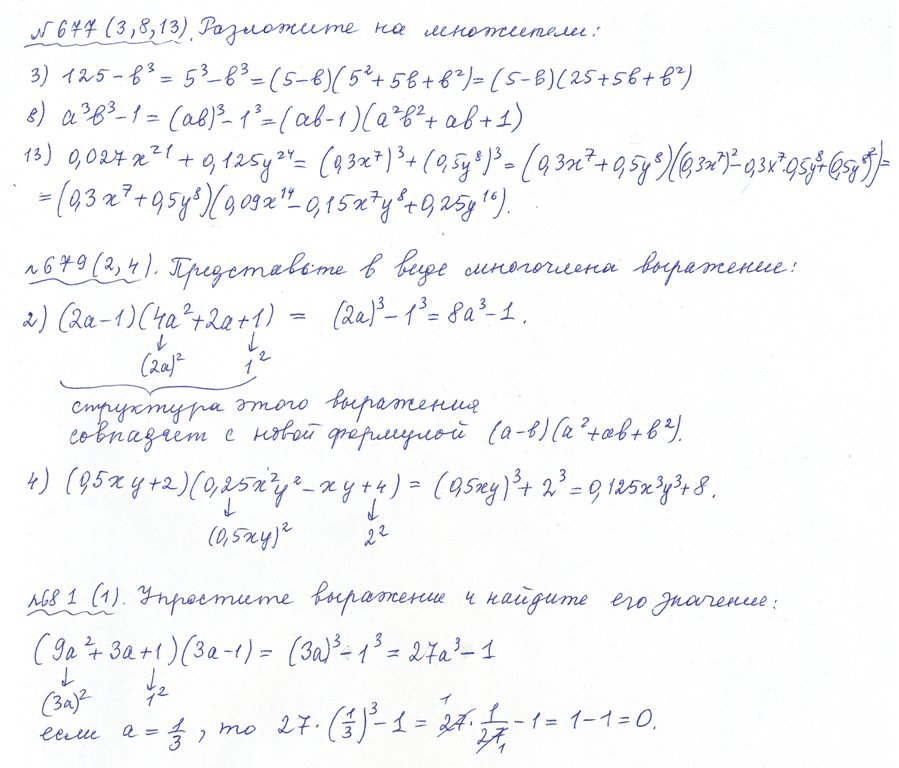 №677 (3,8,13). Разложите на множители:
3) 125 - b³ = 5³ - b³ = (5-b)(5² + 5b + b²) = (5-b)(25 + 5b + b²)
8) a³b³ - 1 = (ab)³ - 1³ = (ab-1)(a²b² + ab + 1)
13) 0,027x²¹ + 0,125y²⁴ = (0,3x⁷)³ + (0,5y⁸)³ = (0,3x⁷ + 0,5y⁸)((0,3x⁷)² - 0,3x⁷·0,5y⁸ + (0,5y⁸)²) =
= (0,3x⁷ + 0,5y⁸)(0,09x¹⁴ - 0,15x⁷y⁸ + 0,25y¹⁶).
№679 (2,4). Представьте в виде многочлена выражение:
2) (2a-1)(4a² + 2a + 1) = (2a)³ - 1³ = 8a³ - 1.
↓ ↓
(2a)² 1²
структура этого выражения
совпадает с новой формулой (a-b)(a² + ab + b²).
4) (0,5xy + 2)(0,25x²y² - xy + 4) = (0,5xy)³ + 2³ = 0,125x³y³ + 8.
↓ ↓
(0,5xy)² 2²
№681 (1). Упростите выражение и найдите его значение:
(9a² + 3a + 1)(3a-1) = (3a)³ - 1³ = 27a³ - 1
↓ ↓
(3a)² 1²
если a = 1/3, то 27·(1/3)³ - 1 = 27¹·1/27₁ - 1 = 1 - 1 = 0.